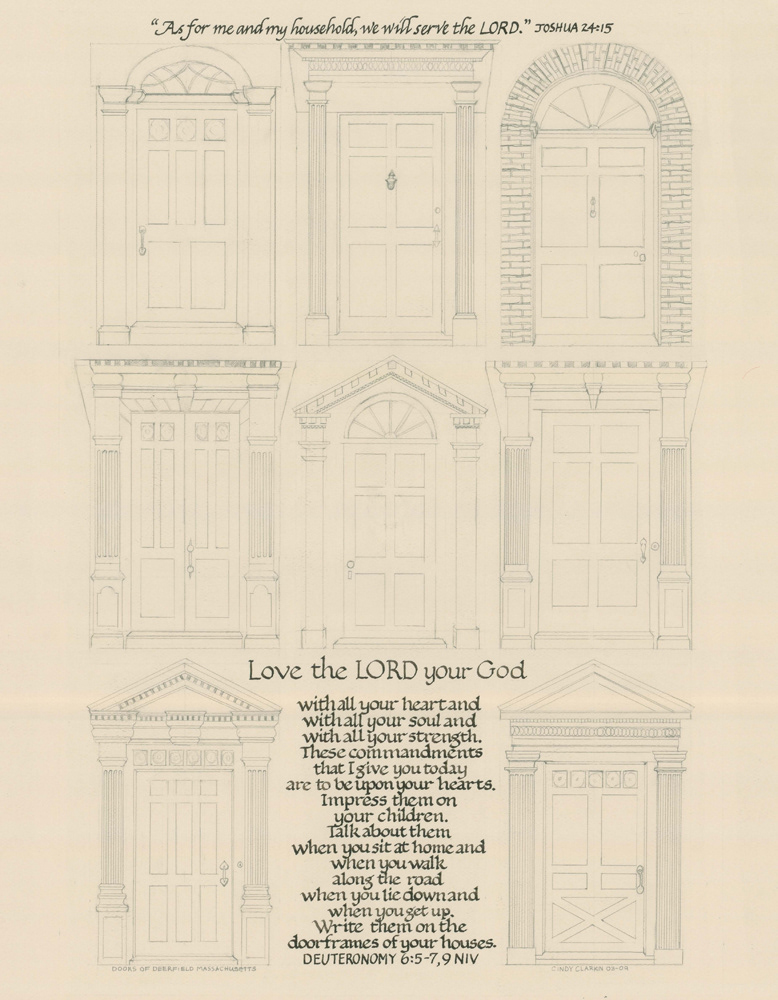 “As for me and my household, we will serve the LORD.” JOSHUA 24:15
Love the LORD your God
with all your heart and
with all your soul and
with all your strength.
These commandments
that I give you today
are to be upon your hearts.
Impress them on
your children.
Talk about them
when you sit at home and
when you walk
along the road
when you lie down and
when you get up.
Write them on the
doorframes of your houses.
DEUTERONOMY 6:5-7,9 NIV
DOORS OF DEERFIELD MASSACHUSETTS
CINDY